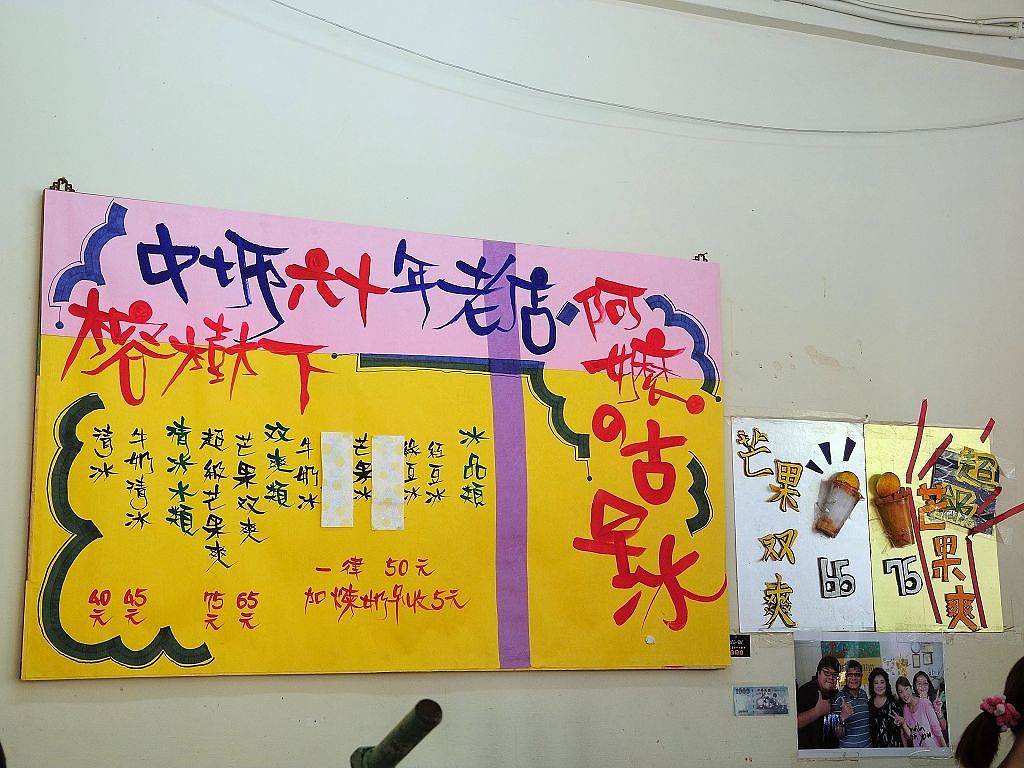 中坜六十年老店·阿嬤の古早冰
榕樹下
冰品類
紅豆冰
綠豆冰
芒果冰
牛奶冰
一律 50元
加煉奶多收5元
双爽類
芒果双爽
65元
超級芒果爽
75元
清冰冰類
牛奶清冰
45元
清冰
40元
芒果双爽
65
超級芒果爽
75
1000